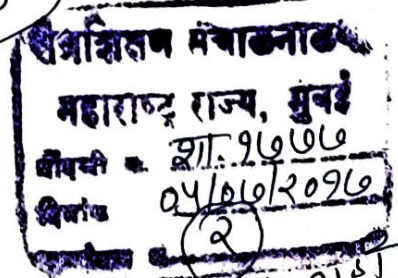 तंत्रशिक्षण संचालनालय
महाराष्ट्र राज्य, मुंबई
नोंदणी क्र. शा. १७७७
दिनांक ०५/०७/२०१७
२